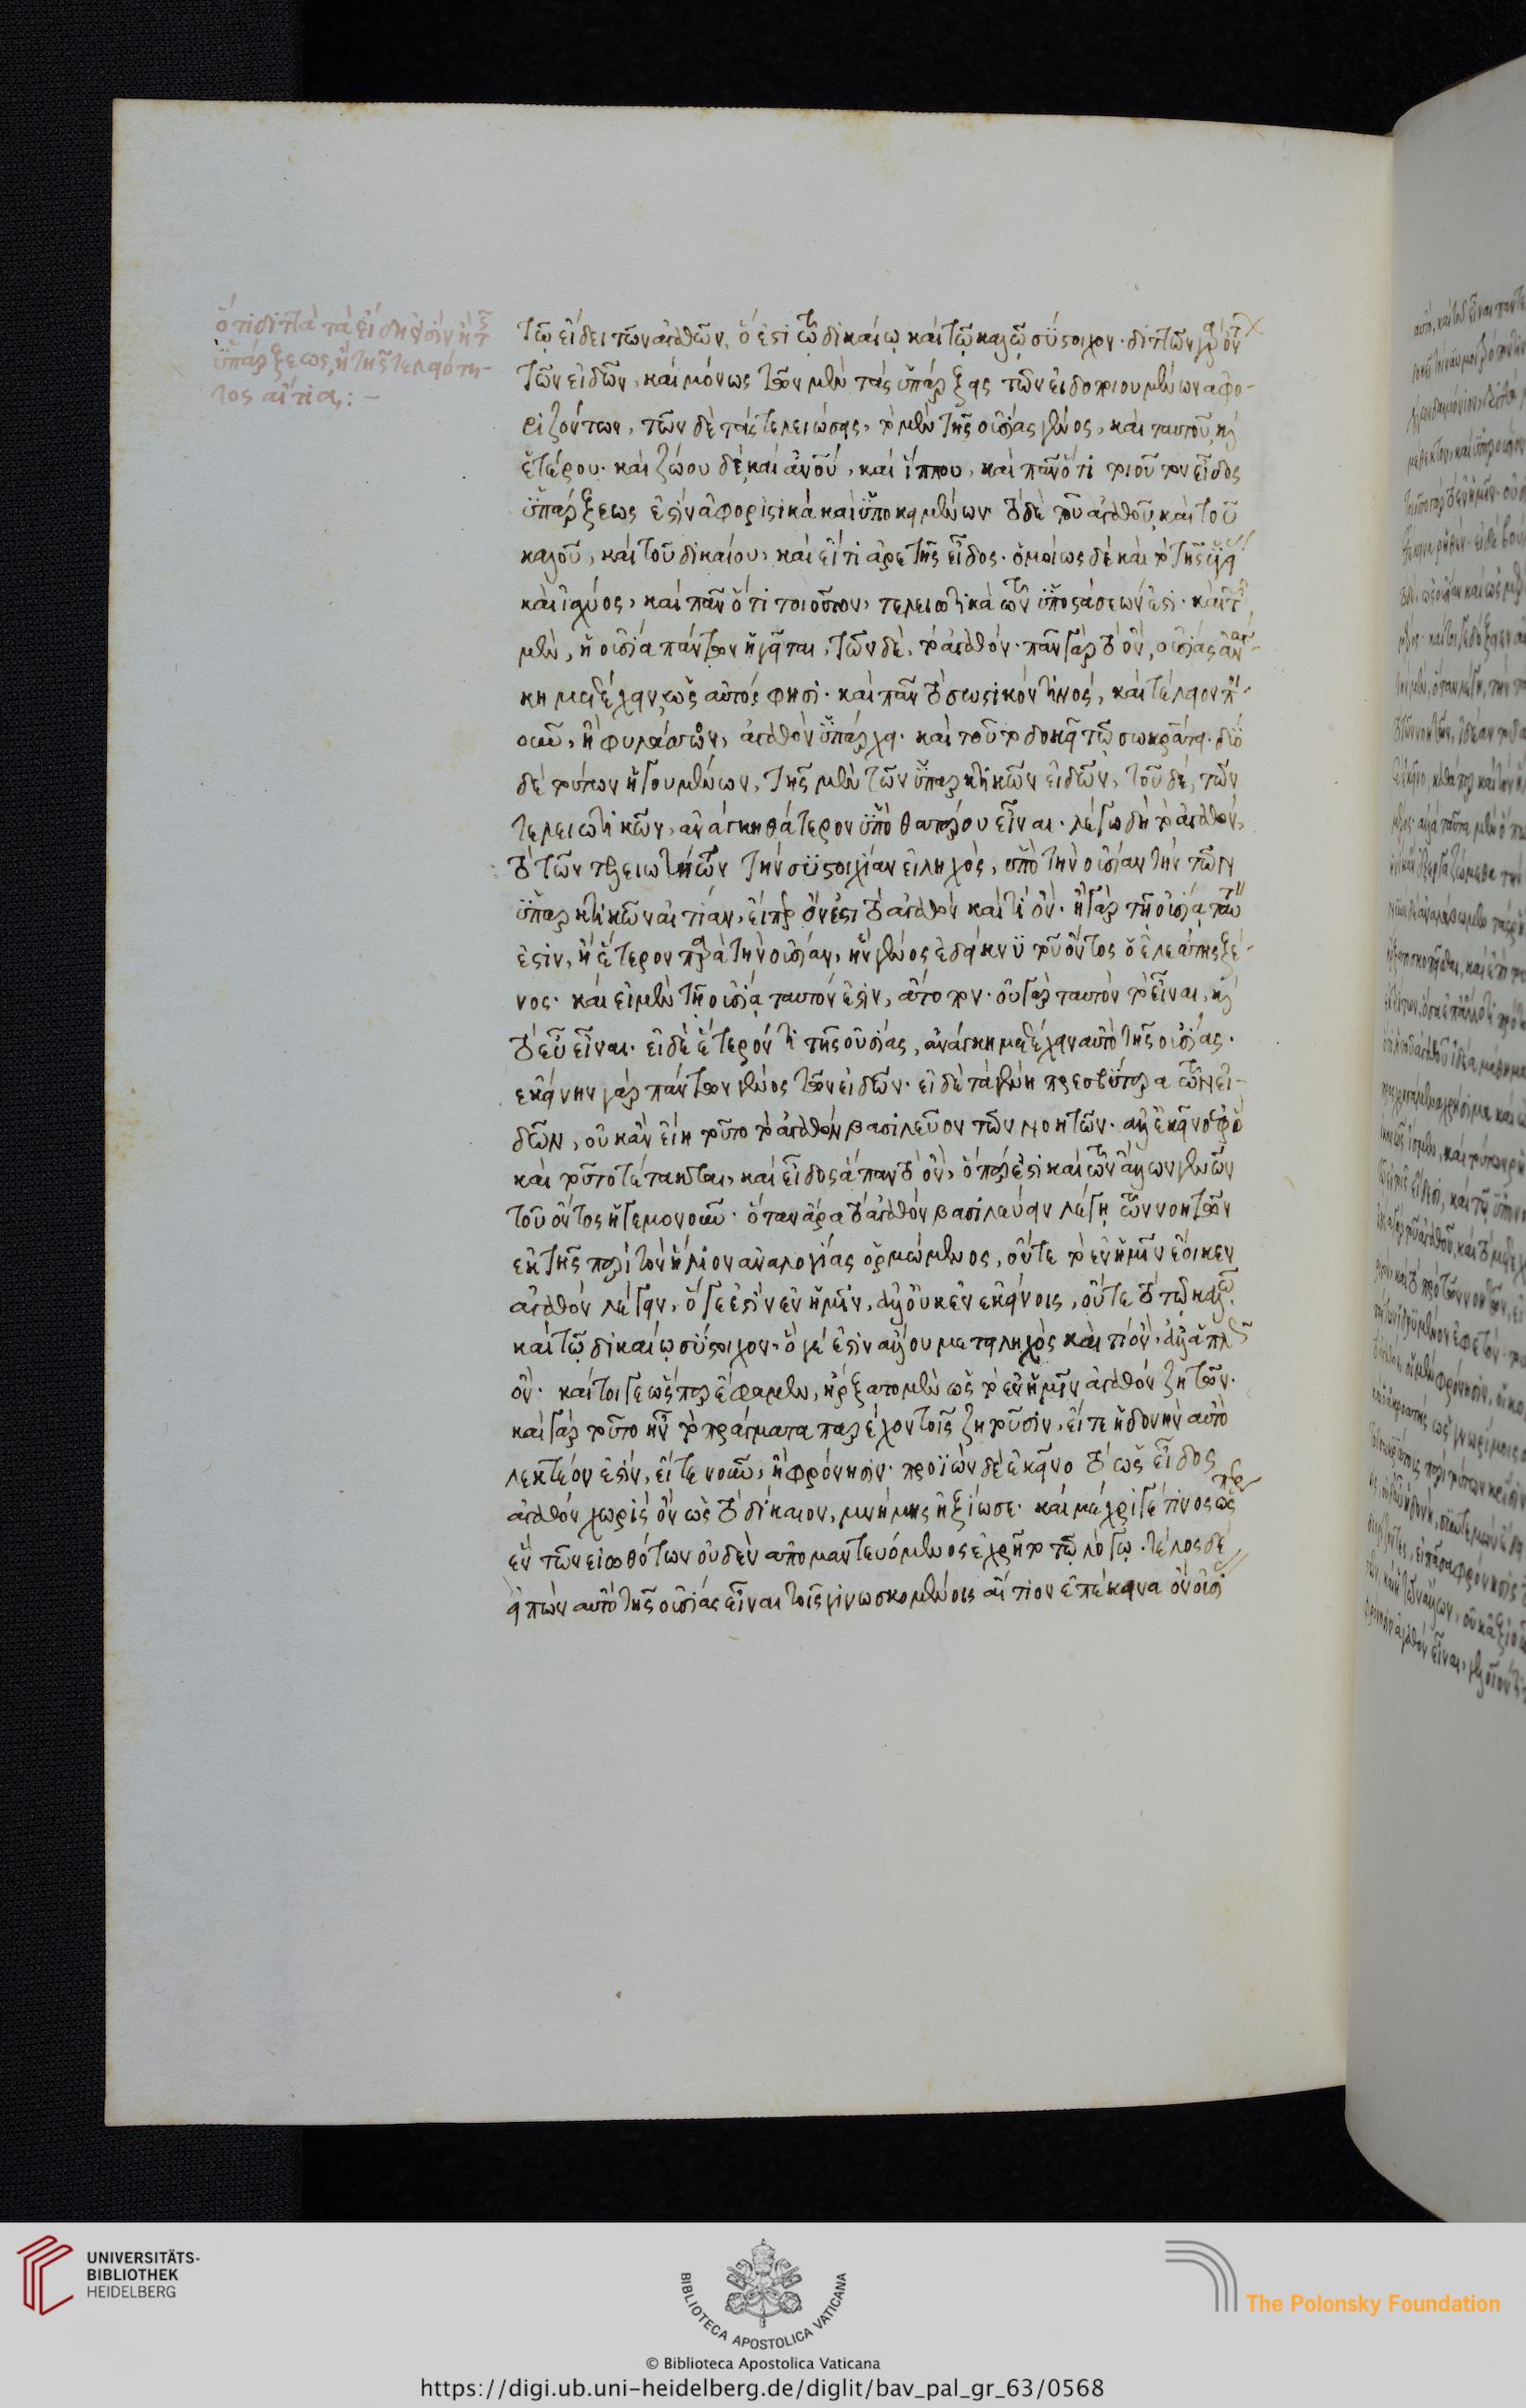 ὅτι διττὰ τὰ εἴδη φησὶν ἢ τῆς
ὑπάρξεως, ἢ τῆς τελειότη-
τος αἴτια: –
τῷ εἴδει τῶν ἀγαθῶν, ὅ ἐστι τῷ δικαίῳ καὶ τῷ καλῷ σύστοιχον. διττῶν γὰρ ὄντων
τῶν εἰδῶν, καὶ μόνως τῶν μὲν τὰς ὑπάρξεις τῶν εἰδοποιουμένων ἀφο-
ριζόντων, τῶν δὲ τὰς τελειώσεις, τὸ μὲν τῆς οὐσίας γένος, καὶ ταυτοῦ, καὶ
ἑτέρου. καὶ ζώου δὲ, καὶ ἀνοῦ, καὶ ἵππου, καὶ πᾶν ὅ τι τοιοῦτον εἶδος
ὑπάρξεως ἐστὶν ἀφοριστικὰ καὶ ὑποκειμένων· τὸ δὲ τοῦ ἀγαθοῦ, καὶ τοῦ
καλοῦ, καὶ τοῦ δικαίου, καὶ εἴ τι ἀρετῆς εἶδος. ὁμοίως δὲ καὶ τὸ τῆς ὑγεί
καὶ ἰσχύος, καὶ πᾶν ὅ τι τοιοῦτον, τελειωτικὰ τῶν ὑποστάσεών ἐστι. καὶ τῶν
μὲν, ἡ οὐσία πάντων ἡγεῖται, τῶν δὲ, τὸ ἀγαθόν. πᾶν γὰρ τὸ ὂν, οὐσίας ἀνάγ-
κη μετέχειν, ὡς αὐτός φησι. καὶ πᾶν τὸ σωστικόν τινος, καὶ τέλειον ποι-
οῦν, ἢ φυλάττον, ἀγαθὸν ὑπάρχει. καὶ τοῦτο δοκεῖ τῷ σωκράτει. δύο
δὲ τούτων ἡγουμένων, τῆς μὲν τῶν ὑπαρκτικῶν εἰδῶν, τοῦ δὲ, τῶν
τελειωτικῶν, ἀνάγκη θάτερον ὑπὸ θατέρου εἶναι. λέγω δὴ τὸ ἀγαθόν,
τὸ τῶν τελειωτικῶν τὴν συστοιχίαν εἰληχὸς, ὑπὸ τὴν οὐσίαν τὴν τῶν
ὑπαρκτικῶν αἰτίαν, εἴπερ ὄν ἐστι τὸ ἀγαθὸν καὶ τὶ ὄν. ἢ γὰρ τῇ οὐσίᾳ ταὐτόν
ἐστιν, ἢ ἕτερον παρὰ τὴν οὐσίαν, ἣν γένος ἐδείκνυ τοῦ ὄντος ὁ ἐλεάτης ξέ-
νος. καὶ εἰ μὲν τῇ οὐσίᾳ ταυτόν ἐστιν, ἄτοπον. οὐ γὰρ ταυτὸν τὸ εἶναι, καὶ
τὸ εὖ εἶναι. εἰ δὲ ἕτερόν τι τῆς οὐσίας, ἀνάγκη μετέχειν αὐτὸ τῆς οὐσίας.
ἐκείνην γὰρ πάντων γένος τῶν εἰδῶν. εἰ δὲ τὰ γένη πρεσβύτερα τῶν εἰ-
δῶν, οὐκ ἂν εἴη τοῦτο τὸ ἀγαθὸν βασιλεῦον τῶν νοητῶν. ἀλλ' ἐκεῖνο ἐφ' ὃ
καὶ τοῦτο τέτακται, καὶ εἶδος ἅπαν τὸ ὂν, ὅπερ ἐστὶ καὶ τῶν ἄλλων γενῶν
τοῦ ὄντος ἡγεμονοῦν. ὅταν ἄρα τὸ ἀγαθὸν βασιλεύειν λέγῃ τῶν νοητῶν
ἐκ τῆς περὶ τὸν ἥλιον ἀναλογίας ὁρμώμενος, οὔτε τὸ ἐν ἡμῖν ἔοικεν
ἀγαθὸν λέγειν, ὅ γε ἐστὶν ἐν ἡμῖν, ἀλλ' οὐκ ἐν ἐκείνοις, οὔτε τὸ τῷ καλῷ
καὶ τῷ δικαίῳ σύστοιχον. ὅ γέ ἐστιν ἄλλου μετειληχὸς καὶ τὶ ὂν, ἀλλ' ἁπλῶς
ὄν. καί τοι γε ὥσπερ ἔφαμεν, ἤρξατο μὲν ὡς τὸ ἐν ἡμῖν ἀγαθὸν ζητῶν.
καὶ γὰρ τοῦτο ἦν τὸ πράγματα παρέχον τοῖς ζητοῦσιν, εἴτε ἡδονὴν αὐτὸ
λεκτέον ἐστίν, εἴτε νοῦν, ἢ φρόνησιν. προϊὼν δὲ ἐκεῖνο τὸ ὡς εἶδος
ἀγαθὸν χωρὶς ὂν ὡς τὸ δίκαιον, μνήμης ἠξίωσε. καὶ μέχρι γέ τινος ὥσπερ
ἐν τῶν εἰωθότων οὐδὲν ἀπομαντευόμενος ἐχρῆτο τῷ λόγῳ. τέλος δὲ
εἰπὼν αὐτὸ τῆς οὐσίας εἶναι τοῖς γινωσκομένοις αἴτιον ἐπέκεινα ὂν οὐσί
UNIVERSITÄTS-
BIBLIOTHEK
HEIDELBERG
BIBLIOTECA APOSTOLICA VATICANA
The Polonsky Foundation
© Biblioteca Apostolica Vaticana
https://digi.ub.uni-heidelberg.de/diglit/bav_pal_gr_63/0568